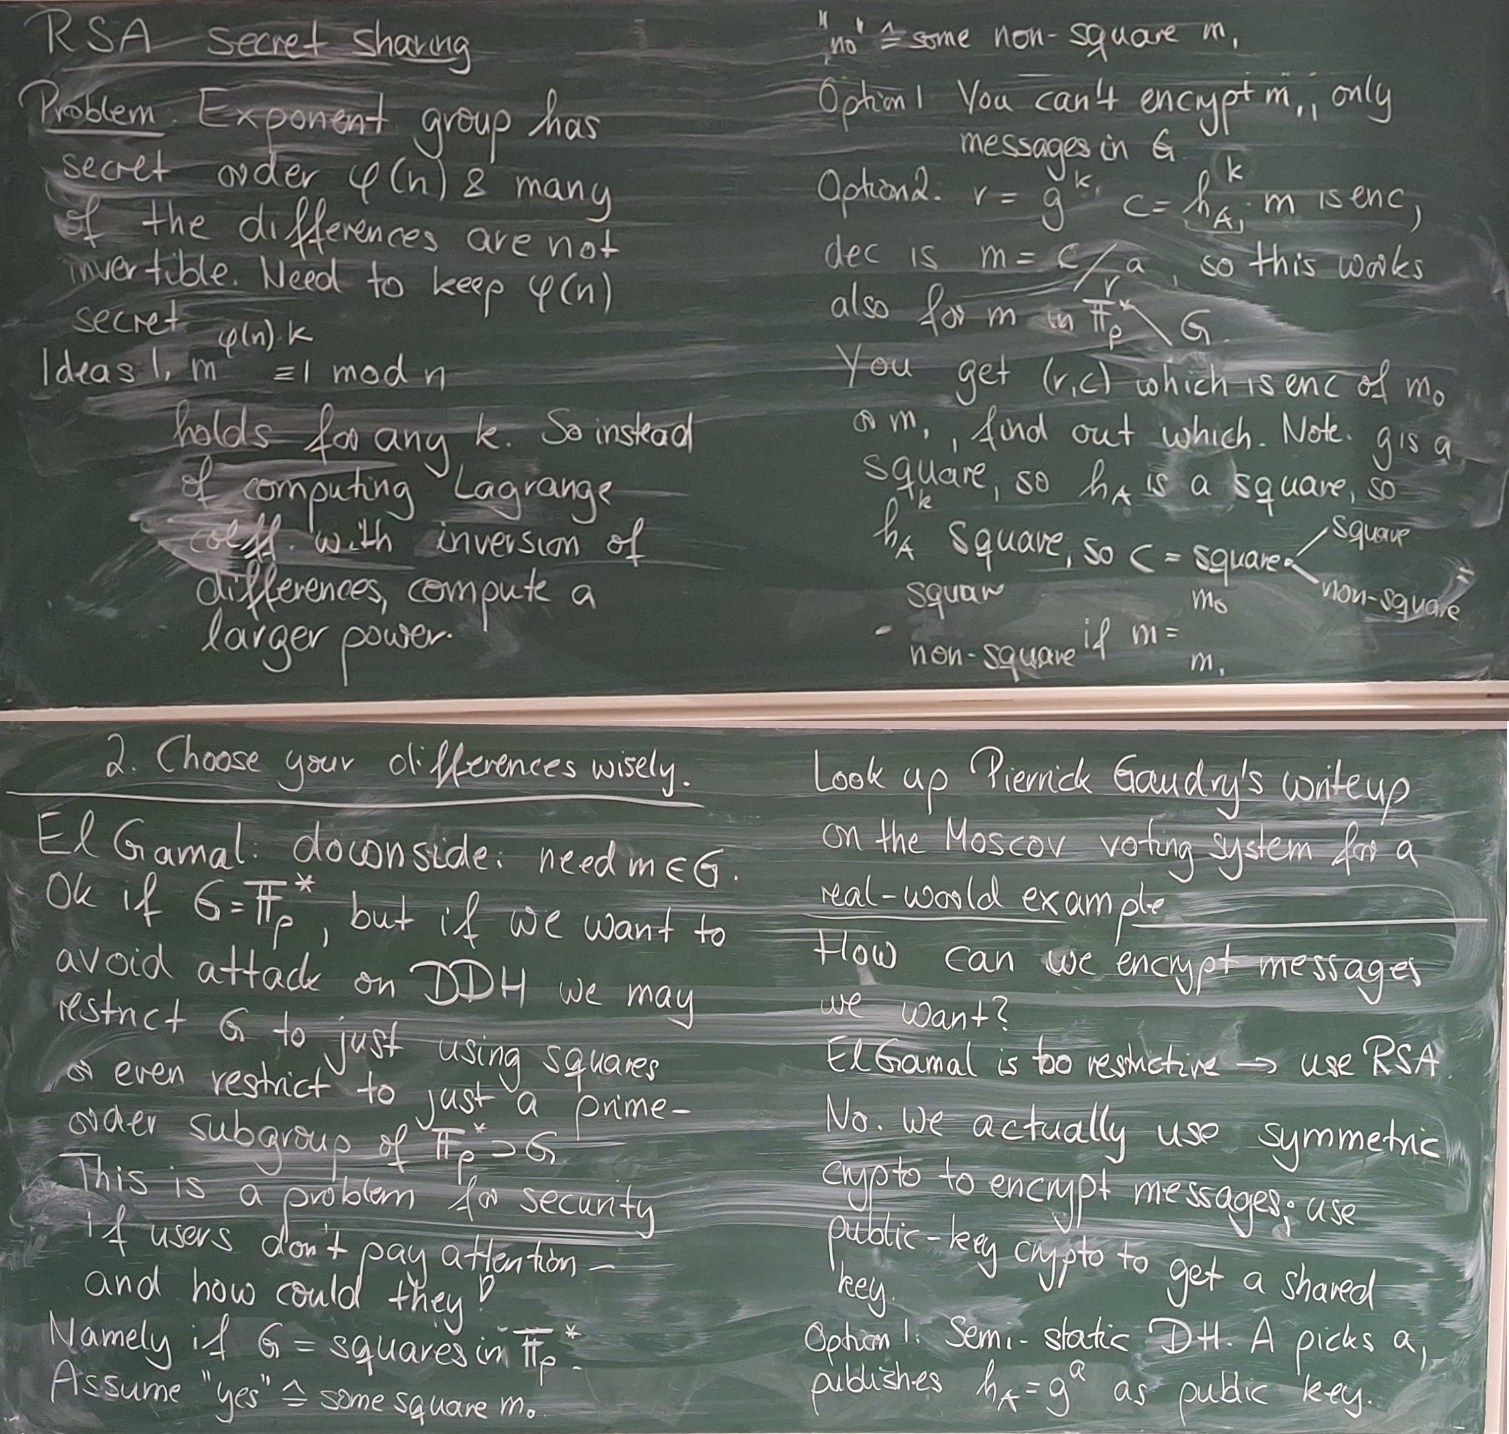 RSA secret sharing
Problem: Exponent group has
secret order φ(n) & many
of the differences are not
invertible. Need to keep φ(n)
secret
Ideas 1, m^{φ(n)·k} ≡ 1 mod n
holds for any k. So instead
of computing Lagrange
coeff. with inversion of
differences, compute a
larger power.
2. Choose your differences wisely.
ElGamal: downside: need m∈G.
Ok if G=𝔽_p^*, but if we want to
avoid attack on DDH we may
restrict G to just using squares
or even restrict to just a prime-
order subgroup of 𝔽_p^* ⊃ G
This is a problem for security
if users don't pay attention –
and how could they?
Namely if G = squares in 𝔽_p^*.
Assume "yes" ≙ some square m₀
"no" ≙ some non-square m₁
Option 1 You can't encrypt m₁, only
messages in G
Option 2: r = g^k, c = h_A^k · m is enc,
dec is m = c/r^a, so this works
also for m in 𝔽_p^* \ G.
You get (r,c) which is enc of m₀
or m₁, find out which. Note: g is a
square, so h_A is a square, so
h_A^k square, so c = square · square
non-square
square if m = m₀
non-square m₁
Look up Pierrick Gaudry's writeup
on the Moscov voting system for a
real-world example
How can we encrypt messages
we want?
ElGamal is too restrictive → use RSA
No. We actually use symmetric
crypto to encrypt messages; use
public-key crypto to get a shared
key.
Option 1: Semi-static DH. A picks a,
publishes h_A = g^a as public key.